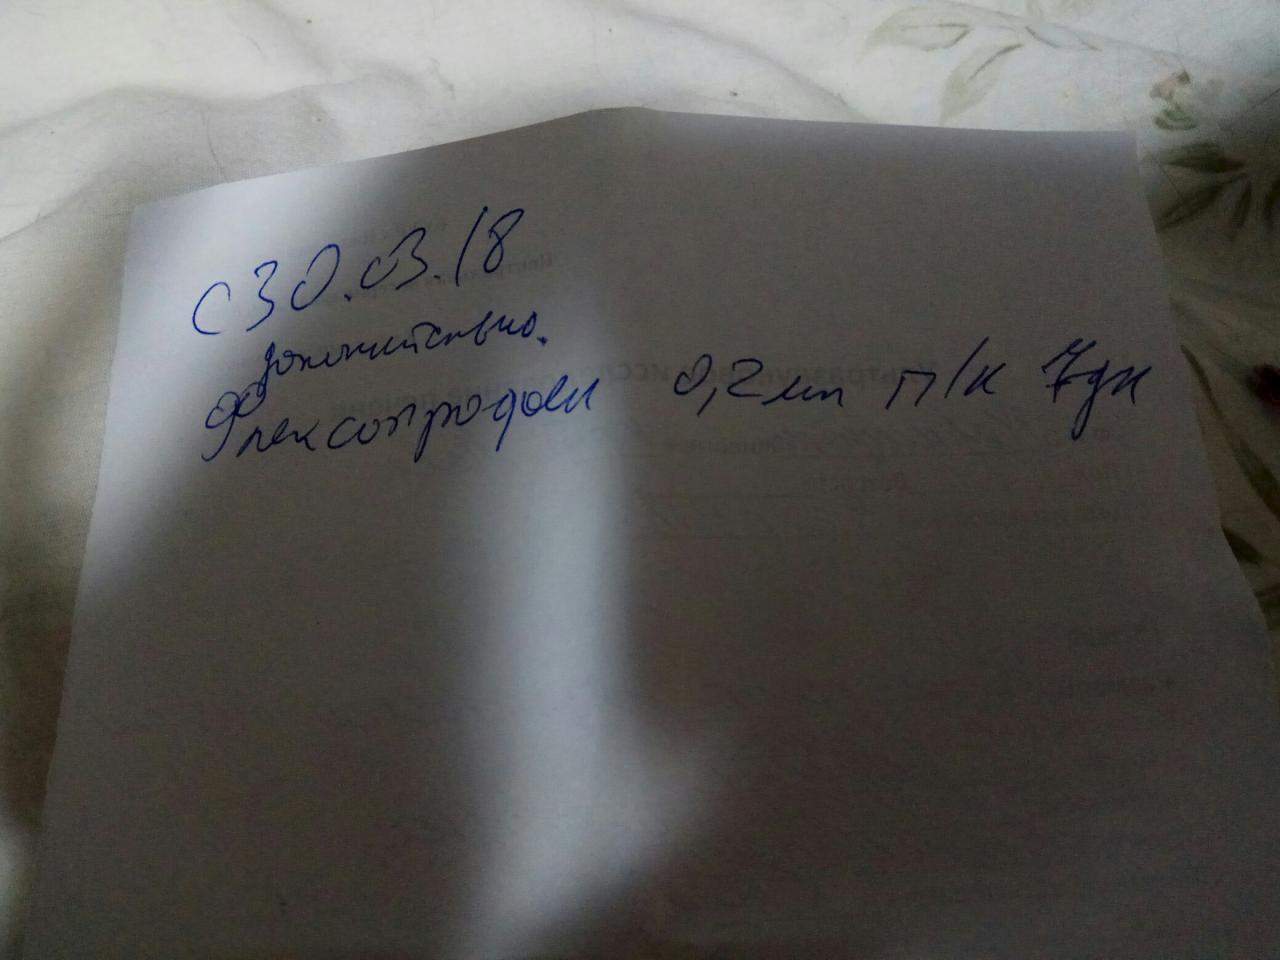 с 30.03.18
дополнительно.
Флексопродои 0,2 мл п/к 7 дн